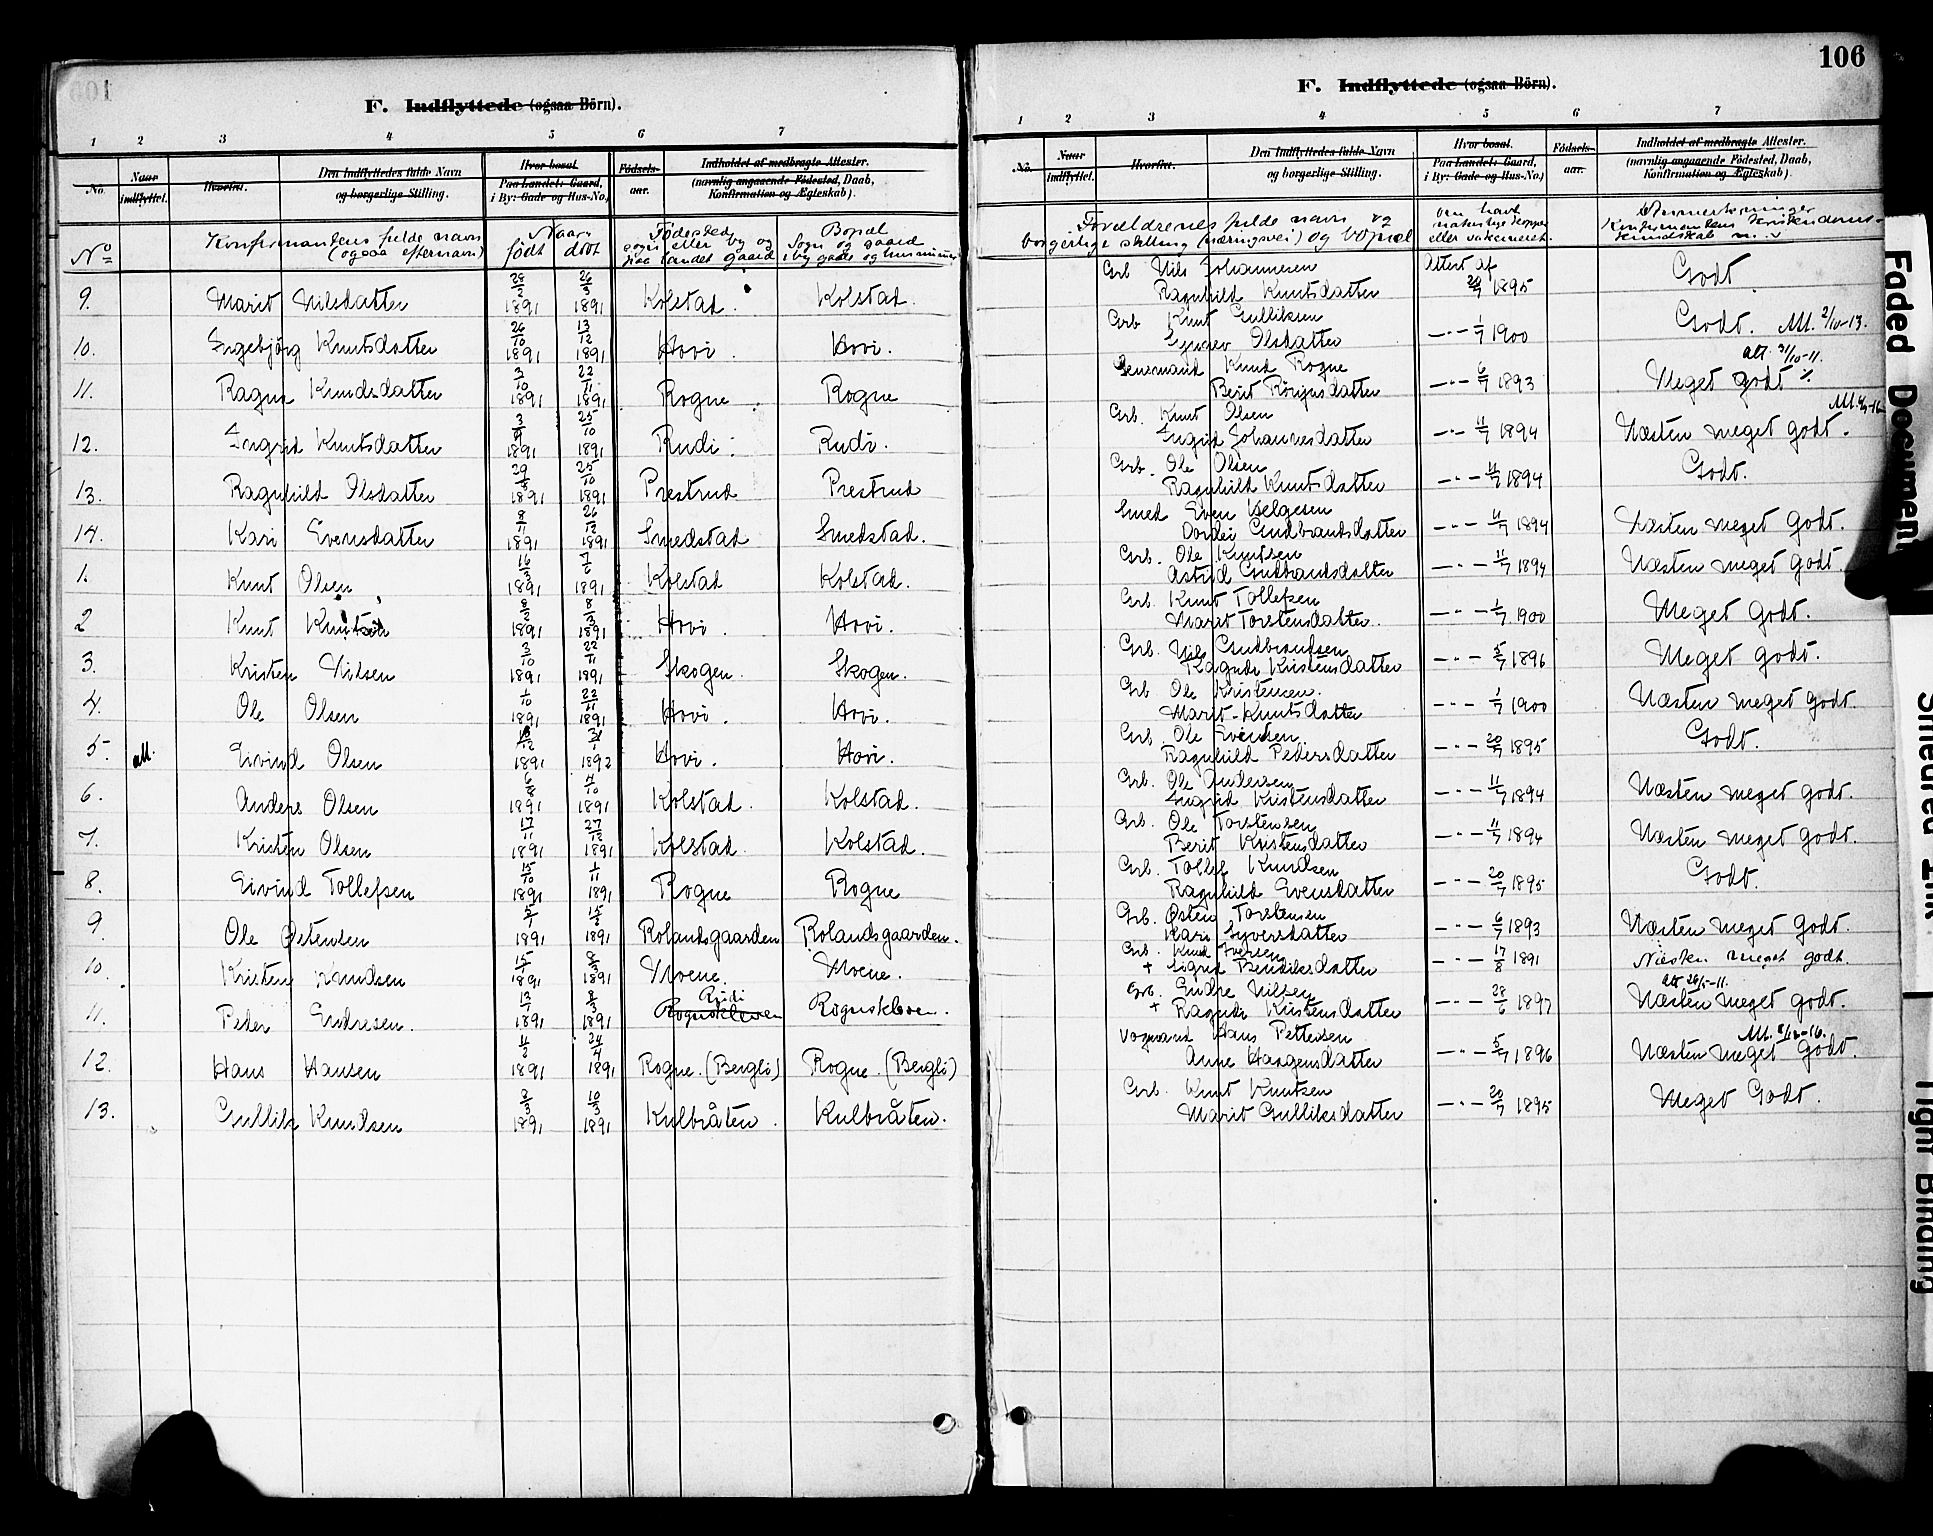 F. Indflyttede (ogsaa Börn).
1 2 3 4 5 6 7
No. Naar indflyttet. Hvorfra. Den Indflyttedes fulde Navn og borgerlige Stilling. Hvor bosat. Paa Landet: Gaard, i By: Gade og Hus-No. Fødsels-aar. Indholdet af medbragte Attester. (navnlig angaaende Födested, Daab, Konfirmation og Ægteskab).
No Konfirmandens fulde navn (ogsaa efternavn) Naar født døbt Fødested sogn eller by og paa landet gaard Bopæl Sogn og gaard i by gade og husnummer
9. Marit Nilsdatter 28/2 1891 26/3 1891 Kolstad. Kolstad.
10. Ingebjørg Knutsdatter 26/10 1891 13/12 1891 Hovi. Hovi.
11. Ragna Knudsdatter 3/10 1891 22/11 1891 Rogne. Rogne
12. Ingrid Knutsdatter 3/9 1891 25/10 1891 Rudi. Rudi.
13. Ragnhild Olsdatter 29/8 1891 25/10 1891 Prestrud Prestrud
14. Kari Evensdatter 8/11 1891 26/12 1891 Smedstad Smedstad.
1. Knut Olsen 16/3 1891 7/6 1891 Kolstad Kolstad.
2 Knut Knutsen 8/2 1891 8/3 1891 Hovi. Hovi.
3. Kristen Nilsen 3/10 1891 22/11 1891 Skogen. Skogen.
4. Ole Olsen 1/10 1891 22/11 1891 Hovi. Hovi.
5. att. Eivind Olsen 1891 31/1 1892 Hovi. Hovi.
6. Anders Olsen 6/8 1891 4/10 1891 Kolstad. Kolstad.
7. Kristen Olsen 17/11 1891 27/12 1891 Kolstad. Kolstad.
8. Eivind Tollefsen 15/10 1891 1/11 1891 Rogne Rogne
9. Ole Østensen 5/1 1891 15/2 1891 Rolandsgaarden Rolandsgaarden.
10. Kristen Knudsen 15/1 1891 8/3 1891 Moene. Moene.
11. Peder Endresen. 13/1 1891 8/3 1891 Rudi Rogneskleven Rogneskleven.
12. Hans Hansen 11/2 1891 24/4 1891 Rogne. (Berglö) Rogne. (Berglö)
13. Gullik Knudsen 2/3 1891 10/3 1891 Kulbråten. Kulbråten.
106
F. Indflyttede (ogsaa Börn).
1 2 3 4 5 6 7
No. Naar indflyttet. Hvorfra. Den Indflyttedes fulde Navn og borgerlige Stilling. Hvor bosat. Paa Landet: Gaard, i By: Gade og Hus-No.) Fødsels-aar. Indholdet af medbragte Attester. (navnlig angaaende Födested, Daab, Konfirmation og Ægteskab).
Forældrenes fulde navn og borgerlige stilling (næringsvei) og bopæl Om havt naturlige kopper eller vakcineret. Anmerkninger Konfirmandens kristendoms-kundskab m. v
Grb Nils Johannesen Attest af Godt
Ragnhild Knutsdatter 20/7 1895
Grb Knut Gulliksen Godt. Att. 2/10-13.
Gjurov Olsdatter —"— 1/7 1900
Lensmand Knut Rogne att. 31/10-11.
Berit Börgesdatter —"— 6/7 1893 Meget godt
Grb. Knut Olsen
Ingrid Johannesdatter —"— 11/7 1894 Næsten meget godt.
Grb. Ole Olsen Godt.
Ragnhild Knutsdatter —"— 11/7 1894
Smed Even Helgesen
Dordei Gudbrandsdatter —"— 11/7 1894 Næsten meget godt.
Grb. Ole Knutsen
Astrid Gudbrandsdatter —"— 11/7 1894 Næsten meget godt.
Grb. Knut Tollefsen
Marit Torstensdatter. —"— 1/7 1900 Meget godt.
Grb. Nils Gudbrandsen
Ragndi Kristensdatter —"— 5/7 1896 Meget godt.
Grb Ole Kristensen.
Marit Knutsdatter —"— 1/7 1900 Næsten meget godt.
Grb. Ole Eivindsen Godt.
Ragnhild Pedersdatter —"— 20/7 1895
Grb. Ole Andersen
Ingrid Kristensdatter —"— 11/7 1894 Næsten meget godt.
Grb. Ole Torstensen
Berit Kristensdatter —"— 11/7 1894 Næsten meget godt.
Grb. Tollef Knudsen Godt.
Ragnhild Evensdatter —"— 20/7 1895
Grb. Østen Torstensen
Kari Syversdatter —"— 6/7 1893 Næsten meget godt.
Grb. Knud Iversen
+ Sigrid Bendiksdatter —"— 17/8 1891 Næsten meget godt.
Grb. Endre Nilsen att 26/5-11.
+ Ragndi Kristensdatter —"— 28/6 1897 Næsten meget godt.
Vognmand Hans Pettersen Att. 8/12-16.
Anne Haagensdatter —"— 5/7 1896 Næsten meget godt.
Grb. Knut Knutsen
Marit Gulliksdatter —"— 20/7 1895 Meget Godt.
Faded Document
Smeared Ink
Tight Binding